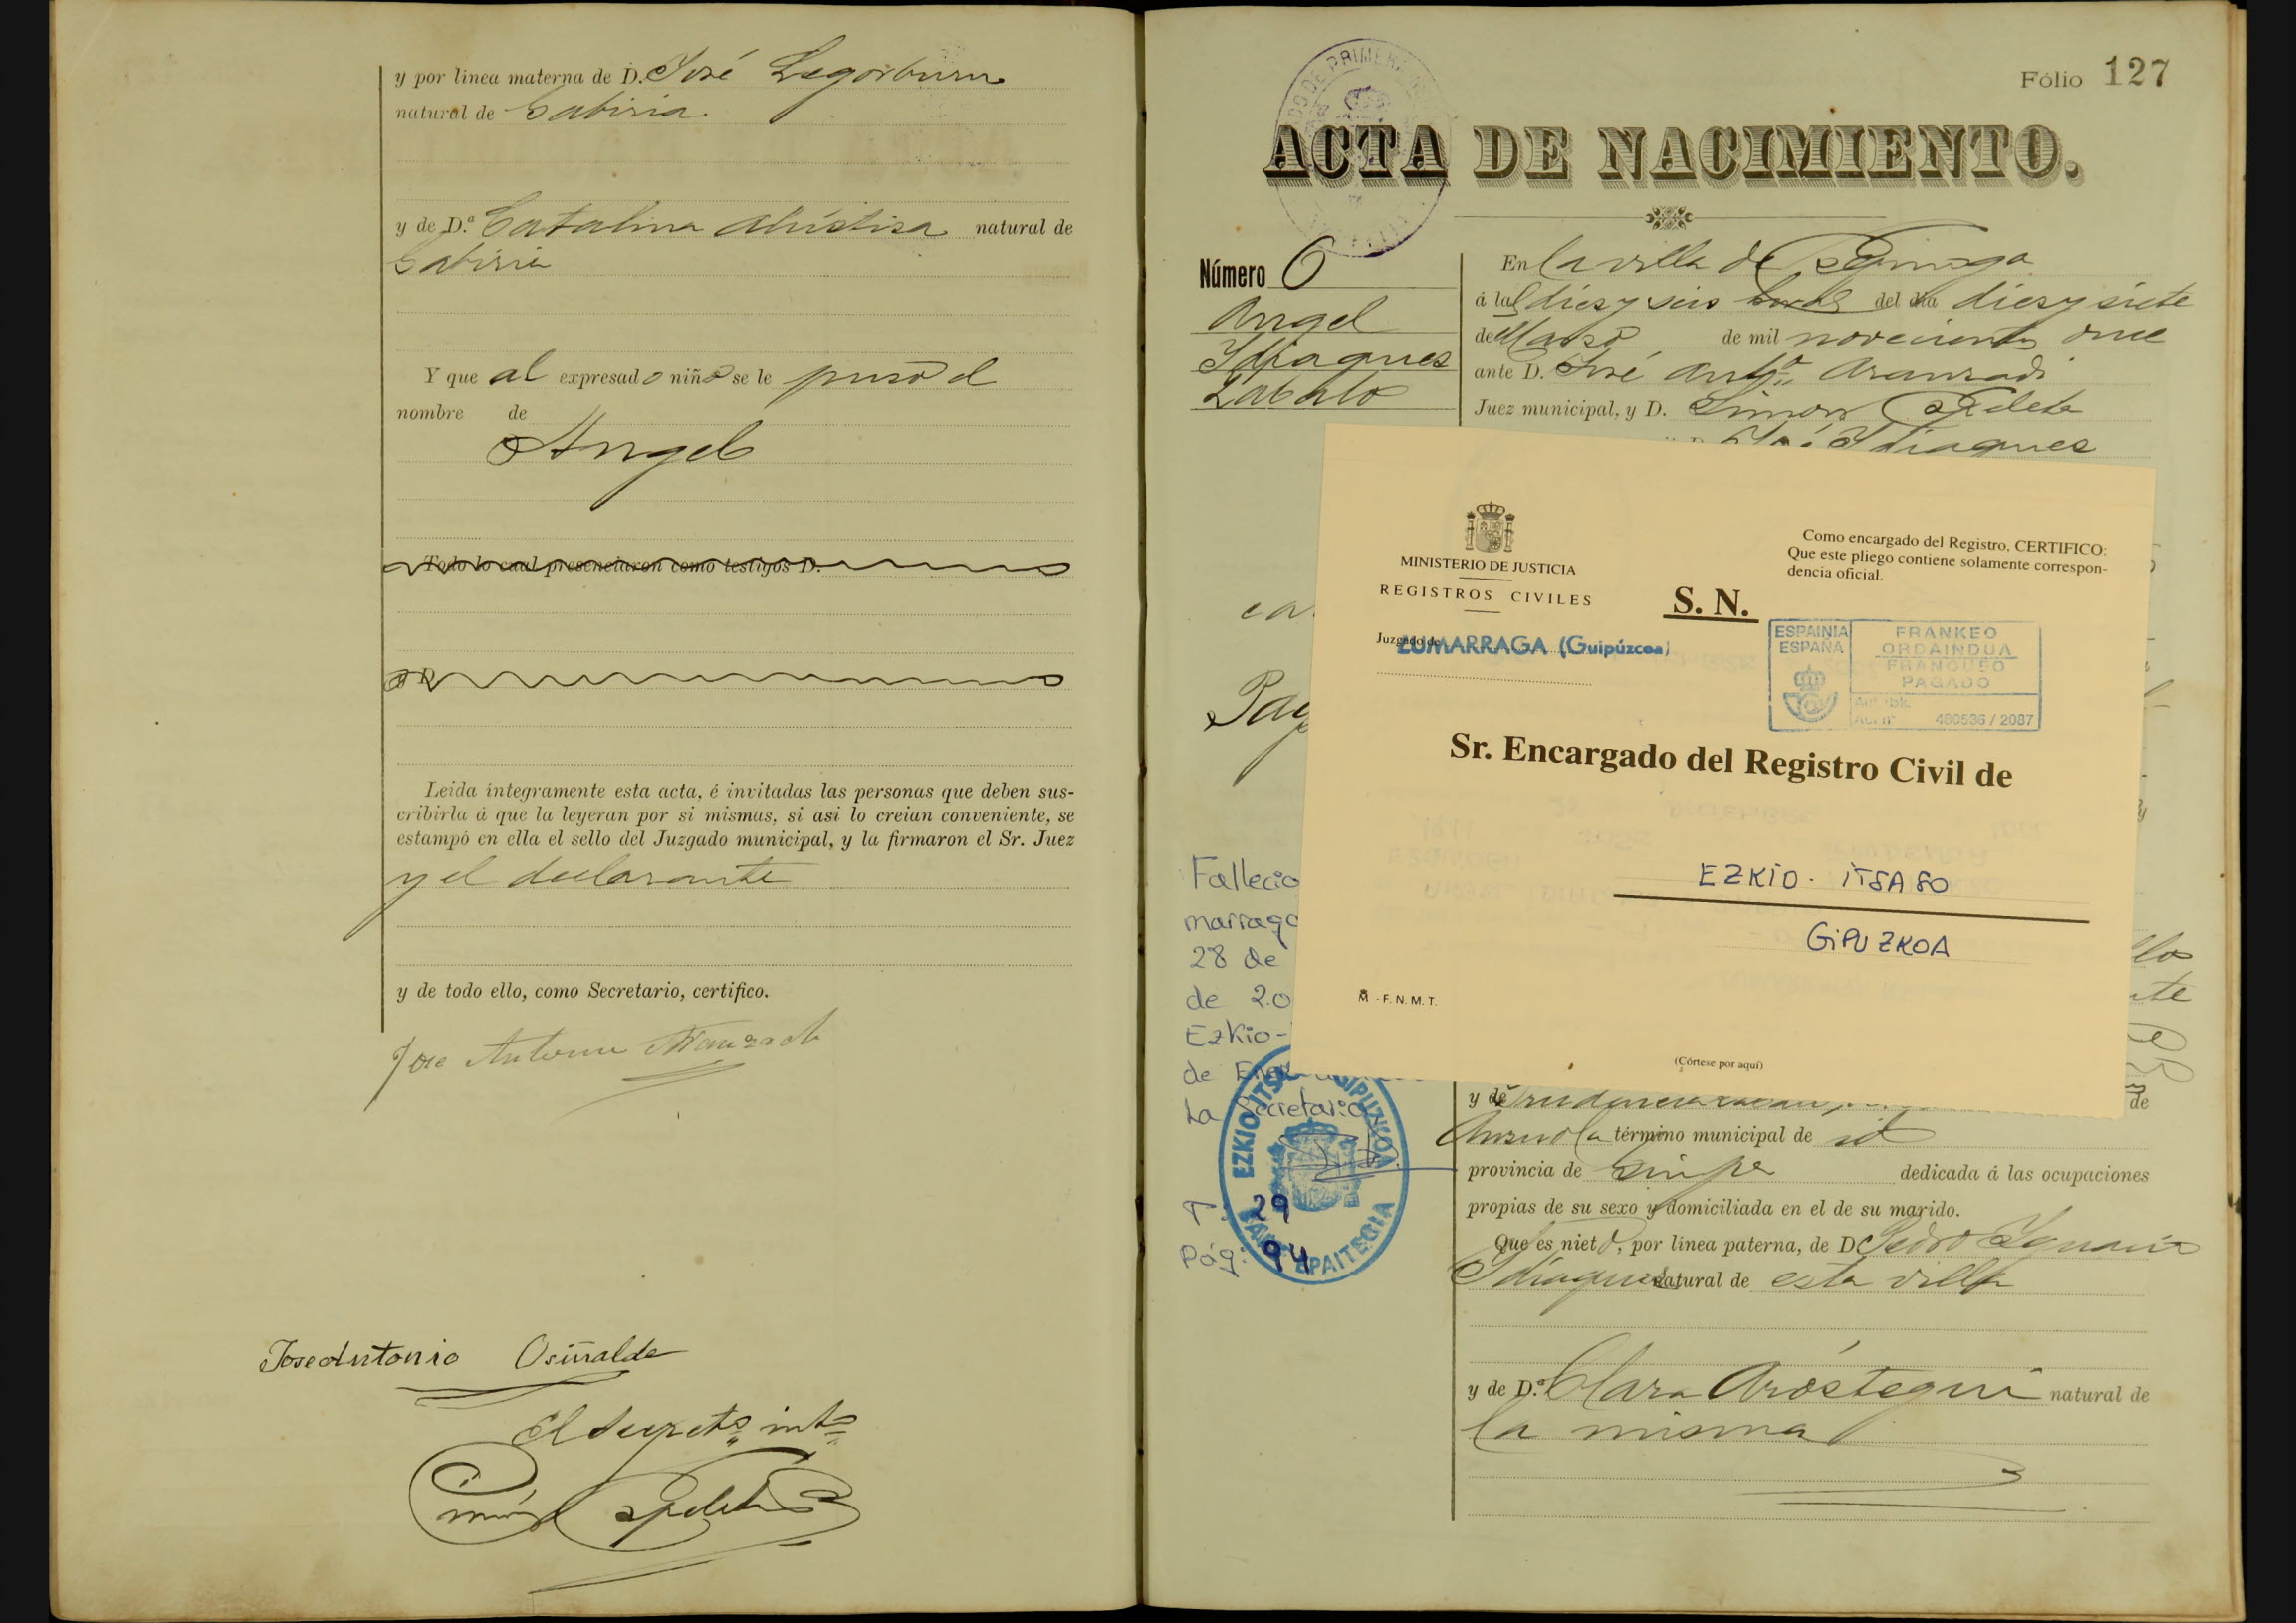 y por linea materna de D. José Legorburu
natural de Gabiria
y de D.ª Catalina Alústiza natural de
Gabiria
Y que al expresado niño se le puso el
nombre de
Angel
Todo lo cual presenciaron como testigos D.
Leida íntegramente esta acta, é invitadas las personas que deben sus-
cribirla á que la leyeran por si mismas, si asi lo creian conveniente, se
estampó en ella el sello del Juzgado municipal, y la firmaron el Sr. Juez
y el declarante
y de todo ello, como Secretario, certifico.
Jose Antonio Aranzadi
Jose Antonio Osiñalde
El Secret.º int.º
Simón
Fólio 127
ACTA DE NACIMIENTO.
Número 6
Angel
Idiaquez
Zabalo
En la villa de Ezquioga
á las diez y seis horas del dia diez y siete
de Marzo de mil novecientos once
ante D. José Ant.º Aranzadi
Juez municipal, y D. Simón
José Idiaquez
MINISTERIO DE JUSTICIA
REGISTROS CIVILES
Juzgado de
ZUMARRAGA (Guipúzcoa)
S. N.
Como encargado del Registro, CERTIFICO:
Que este pliego contiene solamente correspon-
dencia oficial.
ESPAINIA
ESPAÑA
FRANKEO
ORDAINDUA
FRANQUEO
PAGADO
480536 / 2087
Sr. Encargado del Registro Civil de
EZKIO - ITSASO
GIPUZKOA
M - F. N. M. T.
(Córtese por aquí)
Fallecio
marraga
28 de
de 20
Ezkio-
de
La Secretaria
EZKIO-ITSASO GIPUZKOA
BAKE EPAITEGIA
T: 29
Pág: 94
y de Prudencia
Anzuola término municipal de id
provincia de Guip.ª dedicada á las ocupaciones
propias de su sexo y domiciliada en el de su marido.
Que es nieto, por linea paterna, de D. Pedro Ignacio
Idiaquez natural de esta villa
y de D.ª Clara Aróstegui natural de
la misma